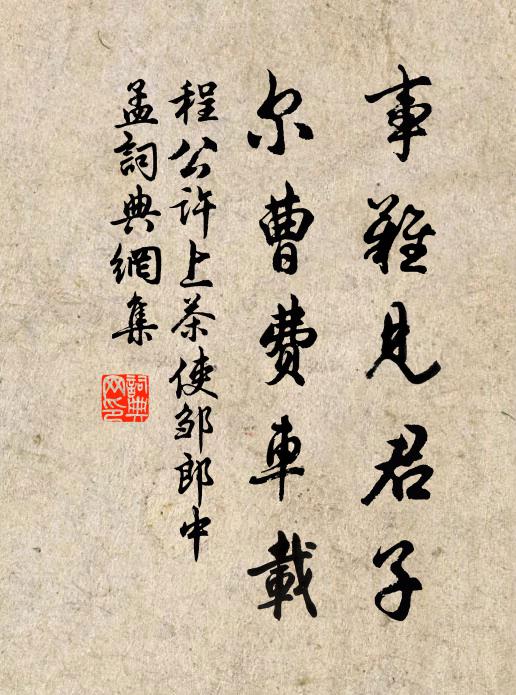 事難見君子
尔曹費車載
程公许上茶使邹郎中
孟詞典網集
詞典
网印